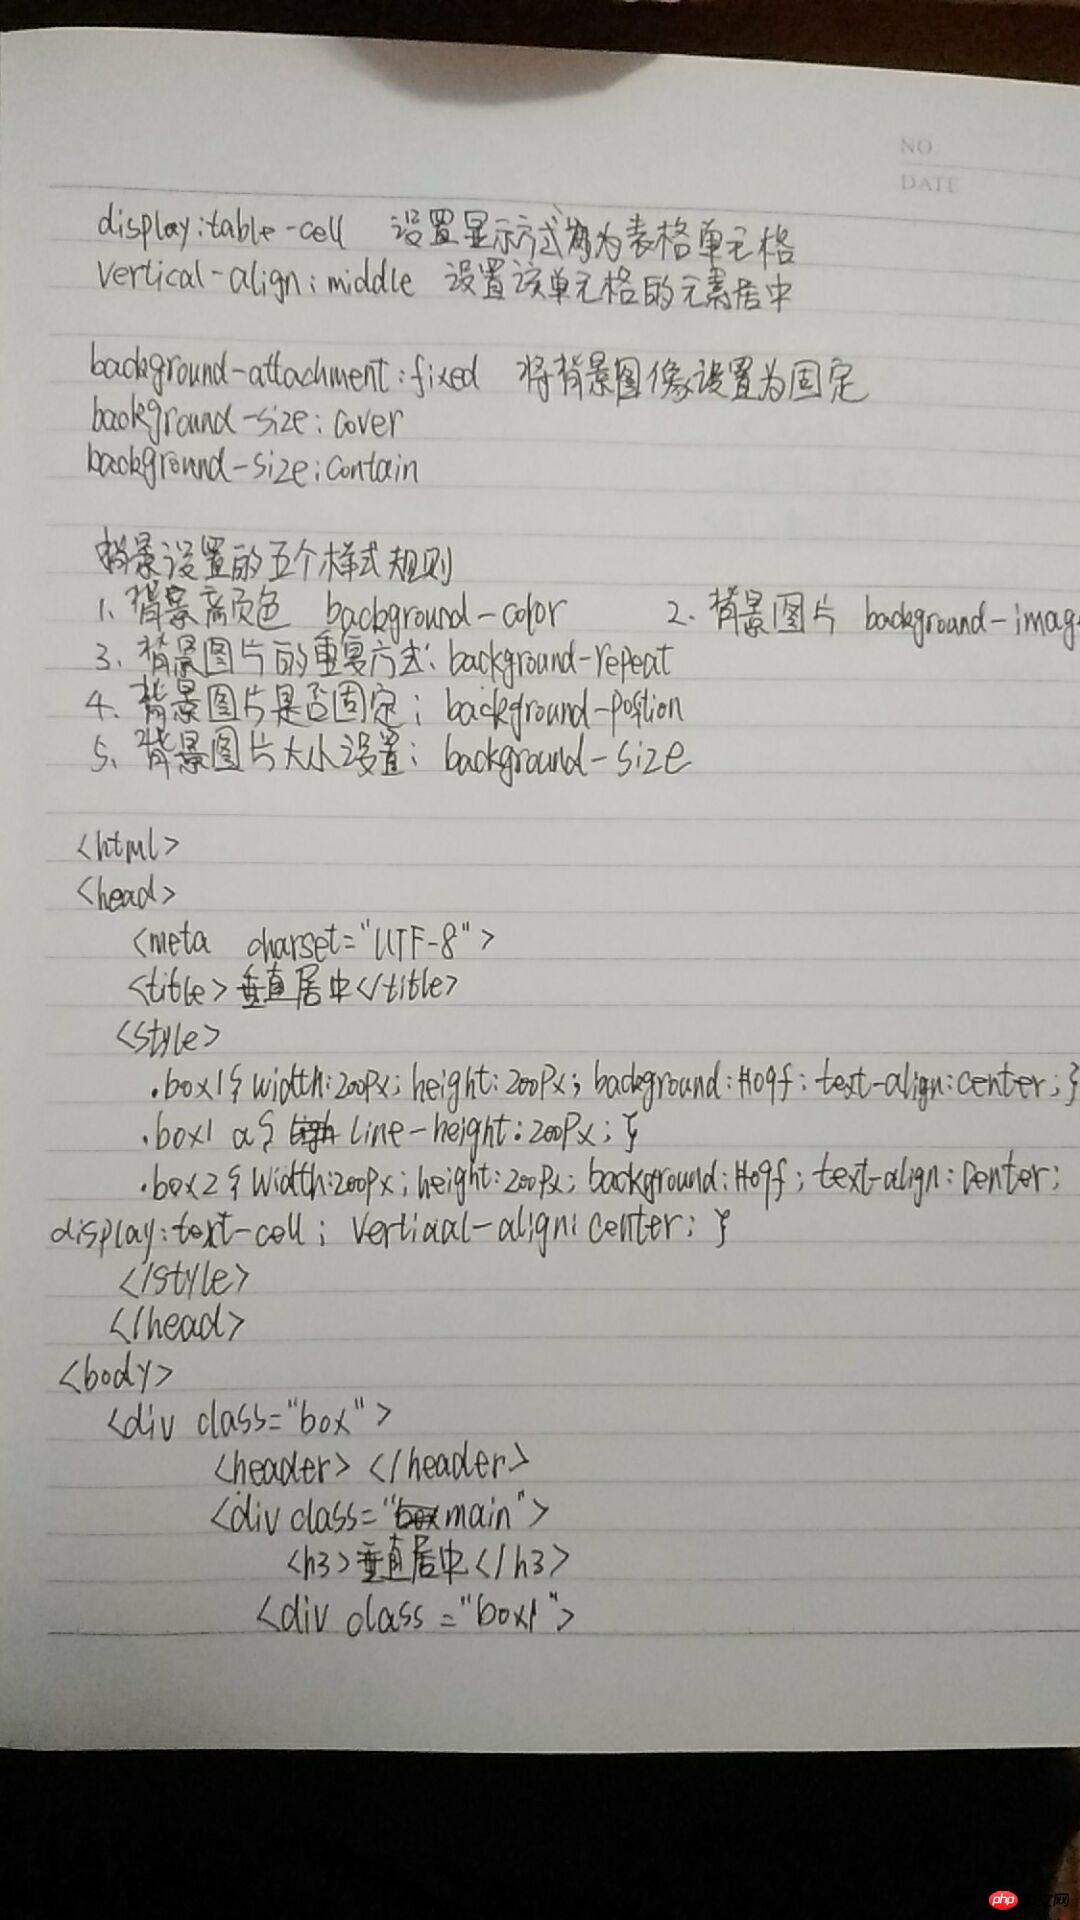 NO
DATE
display:table-cell 设置显示方式为为表格单元格
vertical-align:middle 设置该单元格的元素居中
background-attachment:fixed 将背景图像设置为固定
background-size:cover
background-size:contain
背景设置的五个样式规则
1、背景颜色 background-color 2、背景图片 background-imag
3、背景图片的重复方式:background-repeat
4、背景图片是否固定:background-postion
5、背景图片大小设置:background-size
<html>
<head>
<meta charset="UTF-8">
<title>垂直居中</title>
<style>
.box1{width:200px;height:200px;background:#09f;text-align:center;}
.box1 a{line-height:200px;}
.box2{width:200px;height:200px;background:#09f;text-align:center;
display:text-cell;vertiaal-align:center;}
</style>
</head>
<body>
<div class="box">
<header></header>
<div class="main">
<h3>垂直居中</h3>
<div class="box1">
php